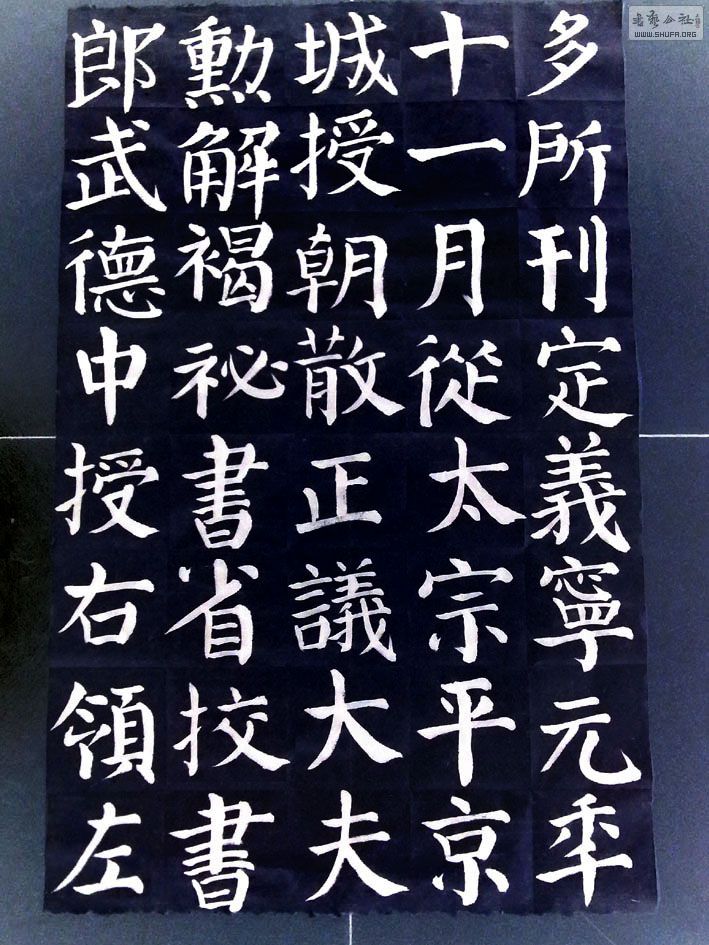 多所刊定義寧元年
十一月從太宗平京
城授朝散正議大夫
勳解褐祕書省挍書
郎武德中授右領左
書藝公社
WWW.SHUFA.ORG